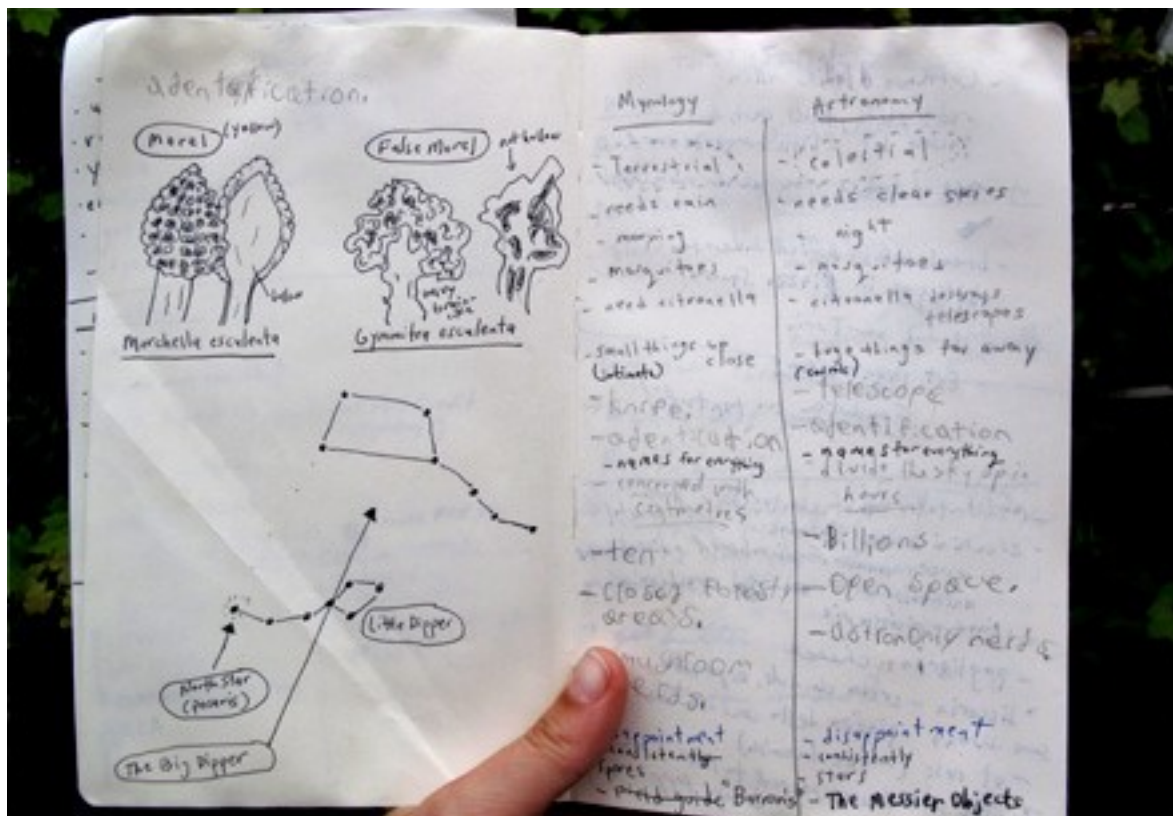 adentification.
Morel (yellow)
False Morel
not hollow
hollow
Morchella esculenta
Gymmitra esculenta
Little Dipper
North Star
(Polaris)
The Big Dipper
Mycology
- Terrestrial
- needs rain
- morning
- mosquitoes
- need citronella
- small things up close
(intimate)
- knife.
- adentification
- names for everything
- concerned with
centimetres
- ten
- closed forest
areas.
mushroom
spores
- Field guide "Barron's"
Astronomy
- celestial
- needs clear skies
- night
- mosquitoes
- citronella destroys
telescopes
- huge things far away
(cosmic)
- telescope
- adentification
- names for everything
divide the sky into
hours
- Billions
- Open space.
- astronomy nerds
- disappointment
- consistently
- stars
- The Messier Objects